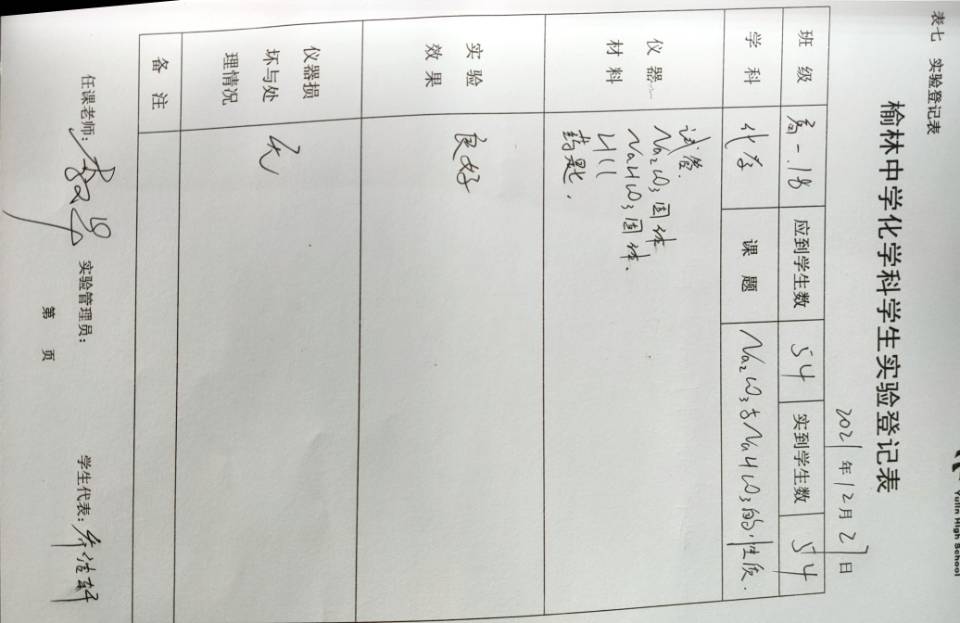 表七 实验登记表
Yulin High School
榆林中学化学科学生实验登记表
2021年12月27日
班级 高一.18 应到学生数 54 实到学生数 54
学科 化学 课题 Na₂CO₃与NaHCO₃的性质.
仪器 材料
试管.
Na₂CO₃固体
NaHCO₃固体.
HCl
药匙.
实验 效果 良好
仪器损坏与处理情况 无
备注
任课老师: 实验管理员: 学生代表:
第 页